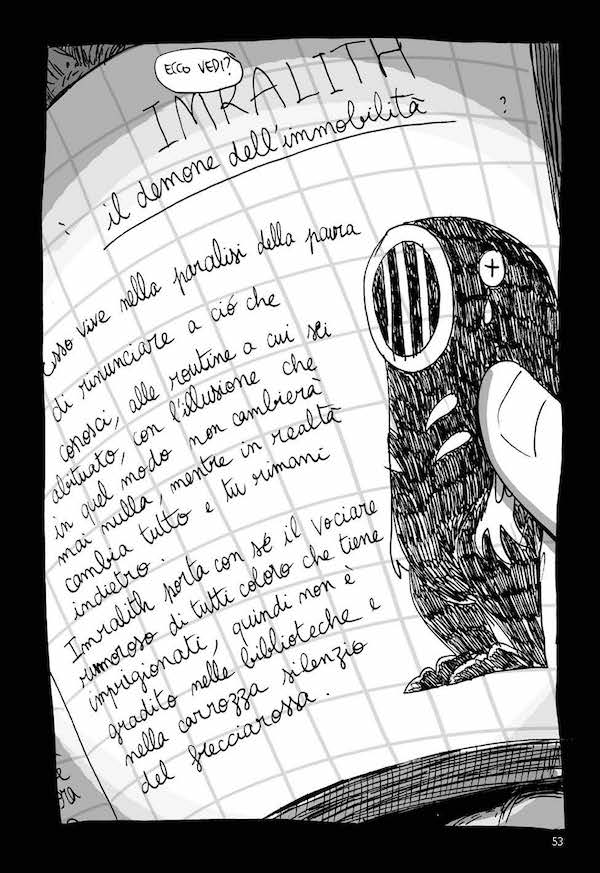 ECCO VEDI?
IMRALITH
il demone dell'immobilità
?
Esso vive nella paralisi della paura
di rinunciare a ciò che
conosci, alle routine a cui sei
abituato, con l'illusione che
in quel modo non cambierà
mai nulla, mentre in realtà
cambia tutto e tu rimani
indietro.
Imralith porta con sé il vociare
rumoroso di tutti coloro che tiene
imprigionati, quindi non è
gradito nelle biblioteche e
nella carrozza silenzio
del frecciarossa.
53